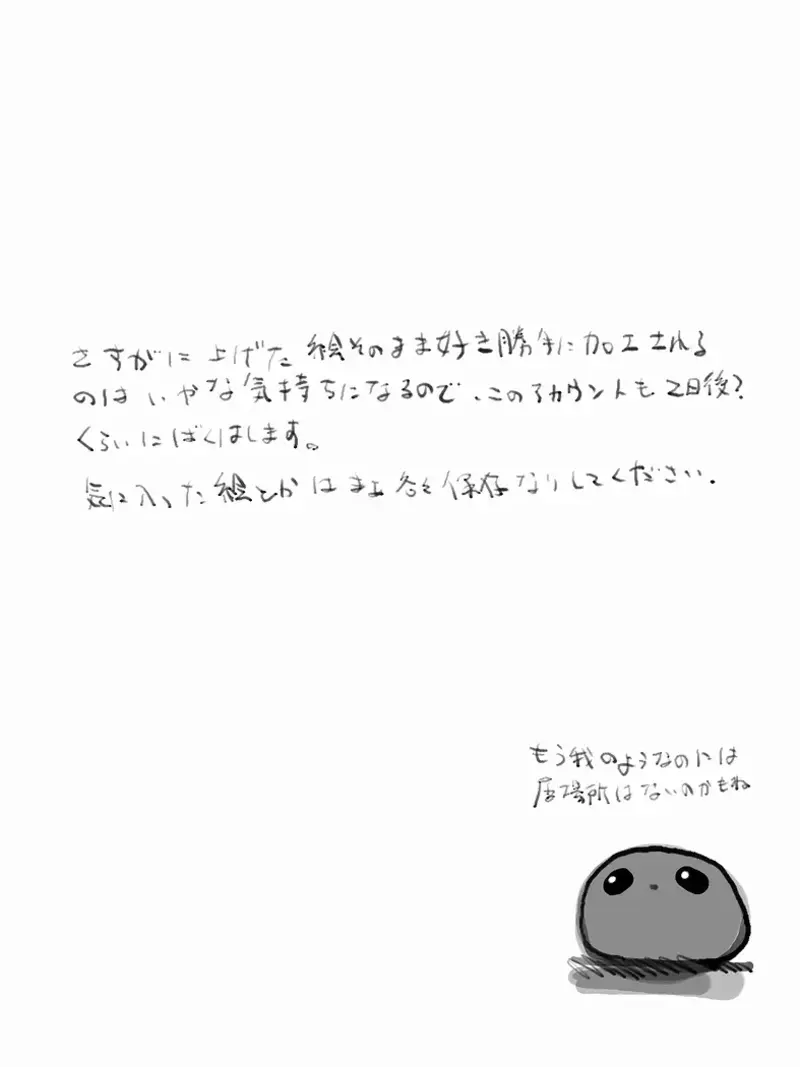 さすがに上げた絵そのまま好き勝手に加工される
のはいやな気持ちになるので、このアカウントも2日後?
くらいにばくはします。
気に入った絵とかはまェ各々保存なりしてください.
もう我のようなのには
居場所はないのかもね